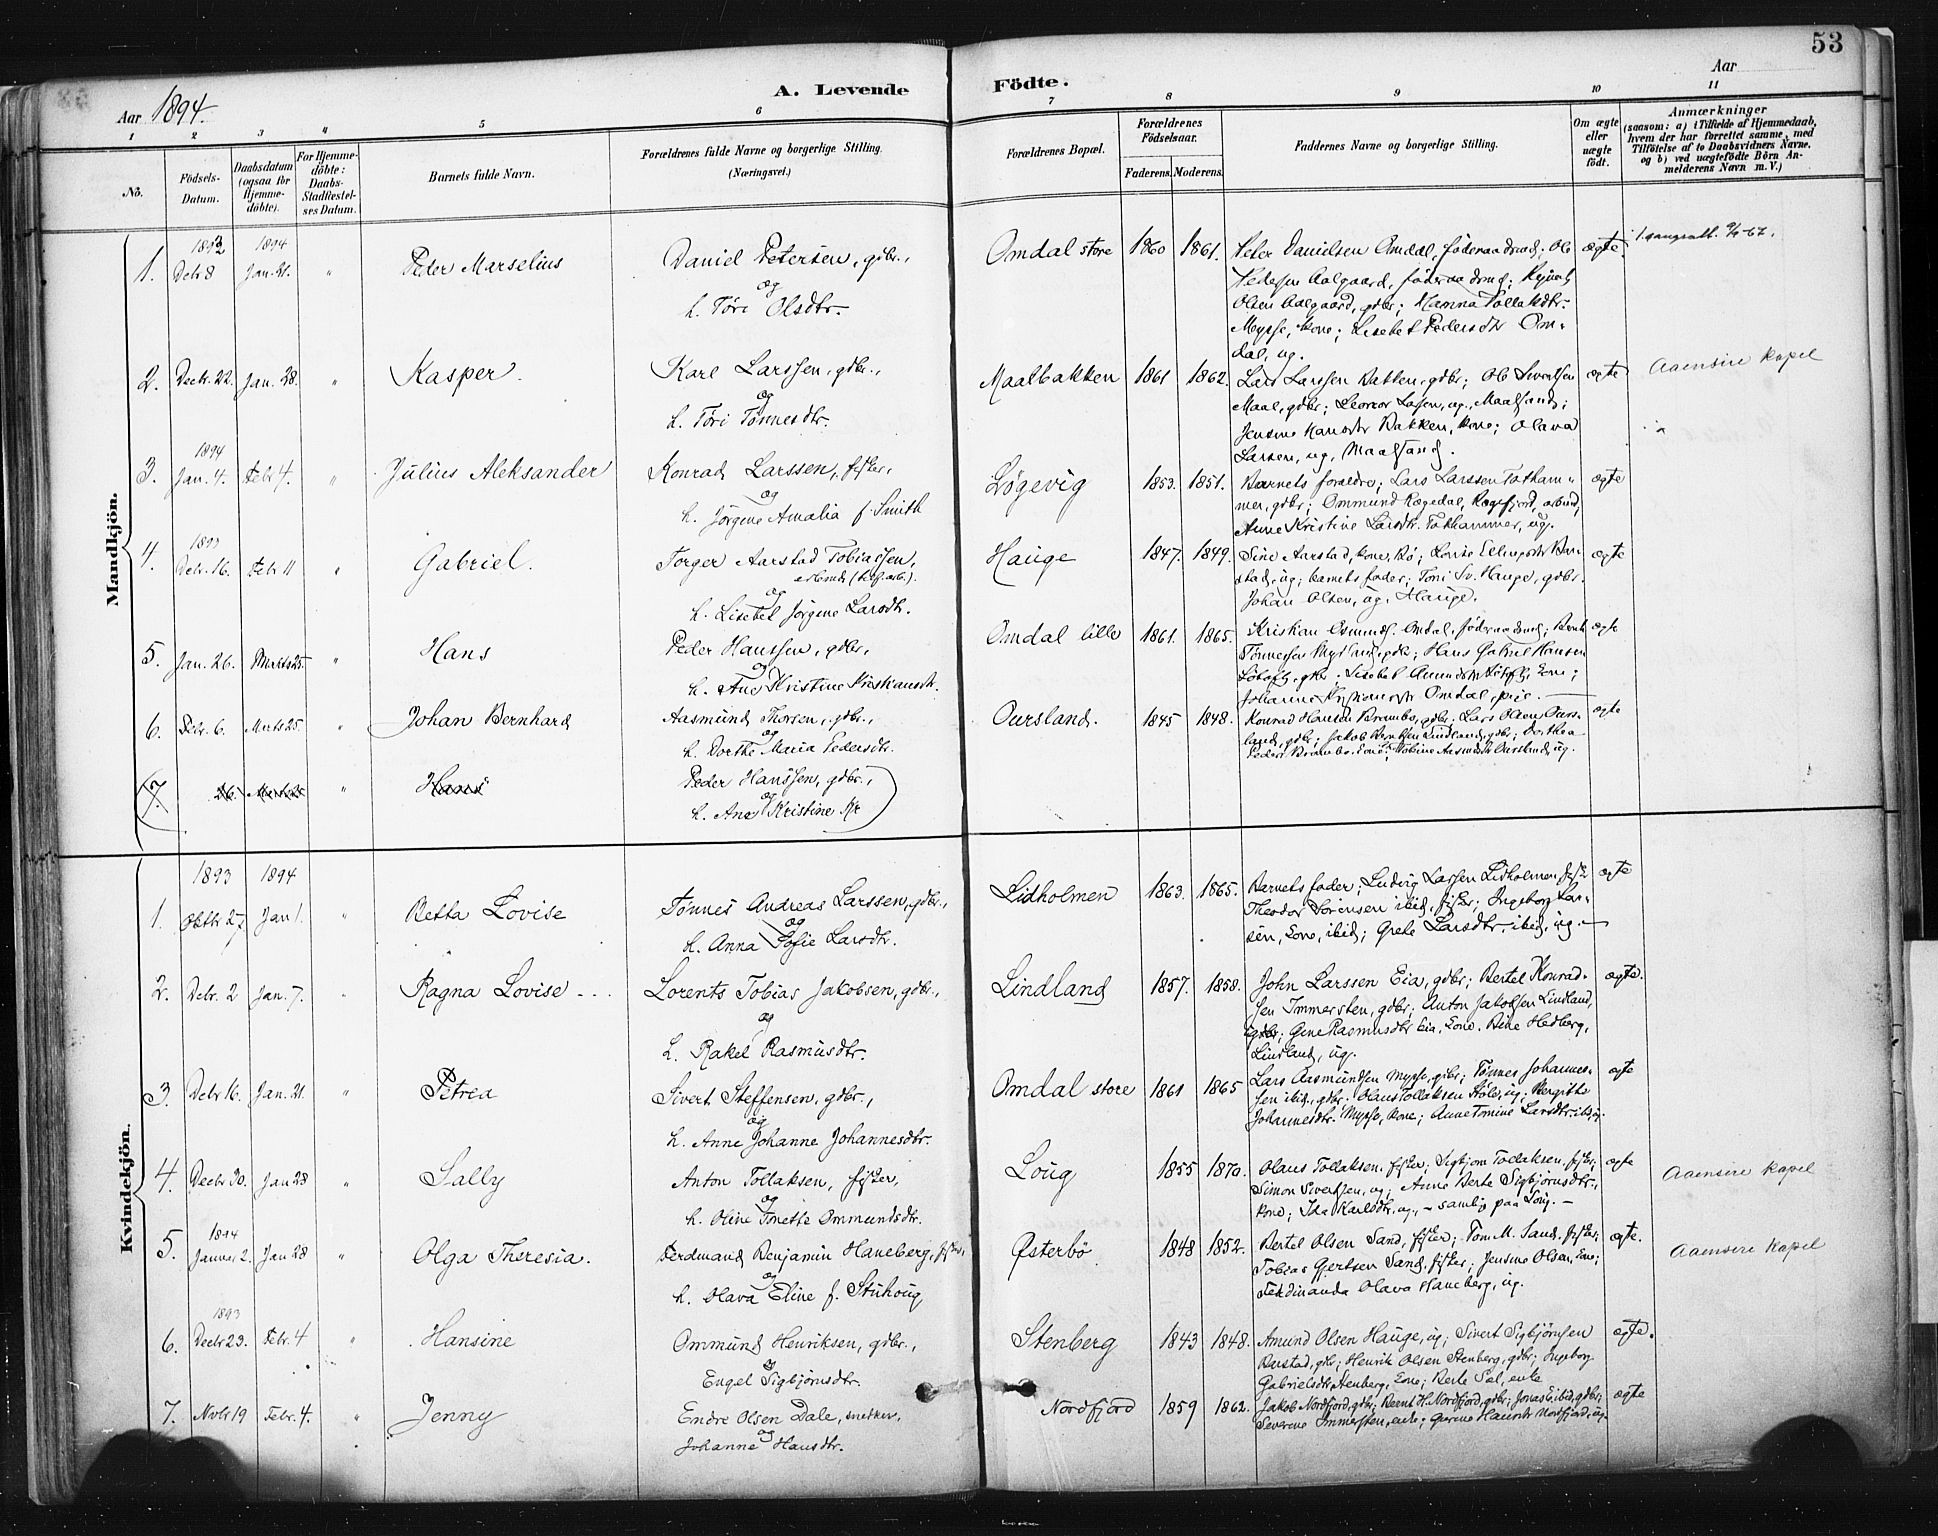 53
A. Levende Födte.
Aar 1894.
Aar
1 2 3 4 5 6 7 8 9 10 11
No.
Födsels-Datum.
Daabsdatum (ogsaa for Hjemme-döbte).
For Hjemme-döbte: Daabs-Stadfæstel-ses Datum.
Barnets fulde Navn.
Forældrenes fulde Navne og borgerlige Stilling. (Næringsvei.)
Forældrenes Bopæl.
Forældrenes Födselsaar.
Faderens. Moderens.
Faddernes Navne og borgerlige Stilling.
Om ægte eller uægte födt.
Anmærkninger
(saasom: a) i Tilfælde af Hjemmedaab,
hvem der har forrettet samme, med
Tilföielse af to Daabsvidners Navne,
og b) ved uægtefödte Börn An-
melderens Navn m. V.)
Mandkjön.
1. 1893 Debr 8 1894 Jan. 21. " Peder Marselius Daniel Petersen, gdbr., og h. Töri Olsdtr. Omdal store 1860 1861. ægte.
Peter Danielsen Omdal, föderaadsmd; Ole
Pedersen Aalgaard, föderaadsmd;
Olsen Aalgaard, gdbr; Hanna Tollaksdtr.
Mysse, kone; Lisebet Pedersdtr Om-
dal, ug.
2. Decbr. 22. Jan. 28. " Kasper. Karl Larssen, gdbr., og h. Töri Tönnesdtr. Maalbakken 1861 1862. ægte Aaensire kapel
Lars Larssen Bakken, gdbr; Ole Sivertsen
Maal, gdbr; ug., Maalsand;
Jensine Hansdtr Bakken, kone; Olava
Larsen, ug, Maalsand.
3. 1894 Jan. 4. Febr 4. " Julius Aleksander Konrad Larssen, fisker, og h. Jörgine Amalia f. Smith Lögevig 1853. 1851. ægte
Barnets foraldre; Lars Larssen Totham-
mer, gdbr; Ommund Rægedal, Rægefjord, arbmd,
Anne Kristine Larsdtr. Tothammer, ug.
4. 1893 Debr. 16. Febr 11 " Gabriel. Torger Aarstad Tobiassen, arbmd og h. Lisebet Jörgine Larsdtr. Hauge 1847. 1849. ægte
Sine Aarstad, kone, Bö;
stad, ug; barnets fader; Toni Sv. Hauge, gdbr.
Johan Olsen, ug. Hauge.
5. Jan. 26. Marts 25. " Hans Peder Hanssen, gdbr., og h. Ane Kristine Kristiansdtr. Omdal lille 1861. 1865. ægte
Kristian Omdal, föderaadsmd;
Tönnessen gdbr; Hans Gabriel Hansen
Johanne Omdal, pige.
6. Febr. 6. Marts 25. " Johan Bernhard Aasmund Thorsen, gdbr., og h. Dorthe Maria Pedersdtr. Oursland. 1845 1848. ægte
Konrad Hansen Brambo, gdbr. Lars Olsen Ours-
land, gdbr; Jakob Lindland, gdbr; Dorthea
Pedersdtr Brambo, kone; Oursland, ug.
(7. 26. Marts 25 " Hans Peder Hanssen, gdbr., og h. Ane Kristine Kr)
Kvindekjön.
1. 1893 Oktbr 27 1894 Jan 1. " Betta Lovise Tönnes Andreas Larssen, gdbr., og h. Anna Sofie Larsdtr. Lidholmen 1863. 1865. ægte
Barnets fader; Ludvig Larssen Lidholmen, fisk
Theodor Sörensen ibid, fisker; Ingeborg Lar-
sen, kone, ibid; Grete Larsdtr. ibid, ug.
2. Debr. 2 Jan. 7. " Ragna Lovise Lorents Tobias Jakobsen, gdbr., og h. Rakel Rasmusdtr. Lindland 1857. 1858. ægte.
John Larssen Eia, gdbr; Bertel Konrad-
sen Immersten, gdbr; Anton Jakobsen Lindland,
gdbr; Gine Rasmusdtr Eia, kone. Bine Hedberg,
Lindland, ug.
3. Debr 16. Jan. 21. " Petrea Sivert Steffensen, gdbr., og h. Anne Johanne Johannesdtr. Omdal store 1861 1865 ægte
Lars Aasmundsen Mysse, gdbr; Tönnes Johannes-
sen ibid., gdbr; Olaus Tollaksen ug; Bergithe
Johannesdtr. Mysse, kone; Anne Tomine Larsdtr. ibid, ug.
4. Decbr 30. Jan 28 " Sally Anton Tollaksen, fisker, og h. Oline Tonette Ommundsdtr. Loug 1855 1870. ægte Aaensire kapel
Olaus Tollaksen, fisker; Sigbjorn Tollaksen, fisker;
Simon Sivertsen, ug; Anne Berte Sigbjörnsdtr.,
kone; Ida Karlsdtr, ug, - samtlig paa Loug. -
5. 1894 Januar 2. Jan 28 " Olga Theresia. Ferdinand Benjamin Haneberg, fisker, og h. Olava Eline f. Stuhoug Østerbö 1848 1852. ægte. Aaensire kapel
Bertel Olsen Sand, fisker; Tom M. Sand, fisker;
Tobias Gjertsen Sand, fisker; Jensine Olsen, kone;
Ferdinanda Olava Haneberg, ug.
6. 1893 Decbr 23. Febr. 4 " Hansine Ommund Henriksen, gdbr., og Engel Sigbjörnsdtr. Stenberg 1843 1848. ægte.
Amund Olsen Hauge, ug; Sivert Sigbjörnsen
Barstad, gbr; Henrik Olsen Stenberg, gdbr; Ingeborg
Gabrielsdtr Stenberg, kone; Berte Sæl, enke
7. Novbr 19 Febr. 4. " Jenny Endre Olsen Dale, snekker, og Johanne Hansdtr. Nordfjord 1859 1862. ægte
Jakob Nordfjord, gdbr; Bernt H. Nordfjord, gdbr; Jonas ibid, gdbr;
Severine Immersten, enke; Gurine Hansdtr Nordfjord, ug.